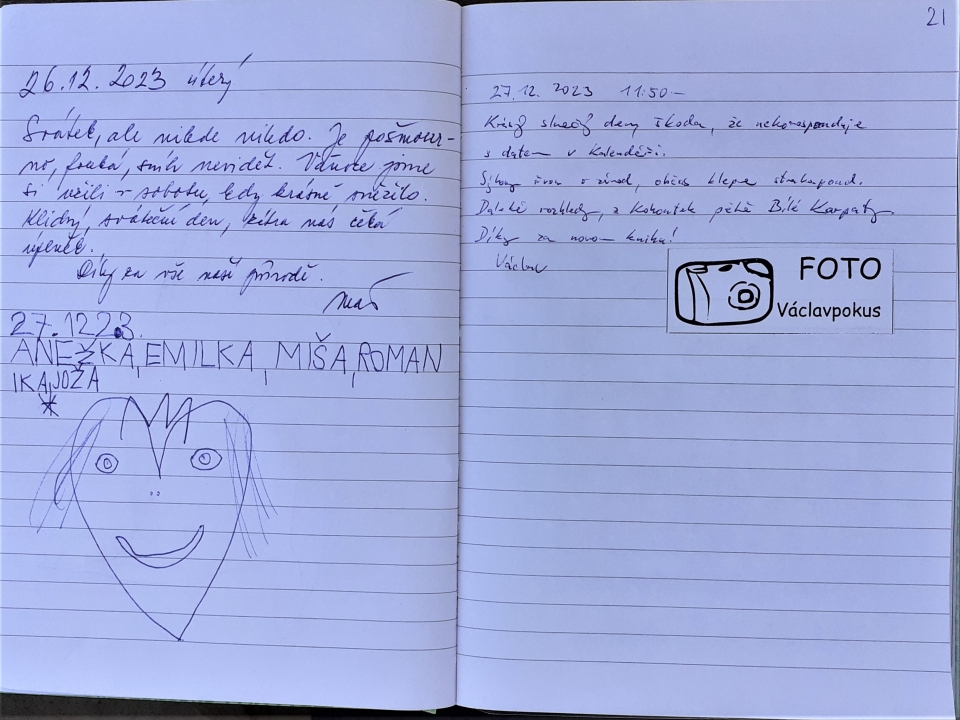 26.12.2023 úterý
Svátek, ale nikde nikdo. Je pošmour-
no, fouká, sníh nevidět. Vánoce jsme
si užili v sobotu, kdy krásně sněžilo.
Klidný, sváteční den, zítra nás čeká
úpeněk.
Díky za vše naší přírodě.
27.12 23.
ANEŽKA, EMILKA, MIŠA, ROMAN
IKA, JOŽA
21
27.12. 2023 11:50
Krásný slunečný den, škoda, že nekoresponduje
s datem v kalendáři.
Sýkory, občas klepe strakapoud.
Daleké rozhledy, z Kohoutek pěkně Bílé Karpaty.
Díky za novou knihu!
Václav
FOTO
Václavpokus